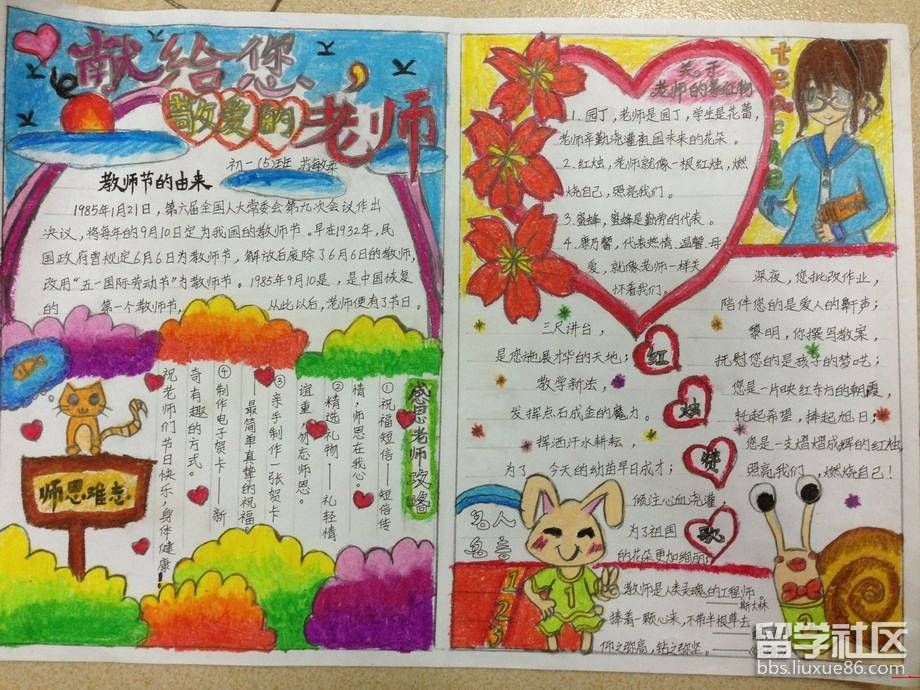 献给您、
敬爱的老师
初一(5)班
教师节的由来
1985年1月21日，第六届全国人大常委会第九次会议作出
决议，将每年的9月10日定为我国的教师节。早在1932年，民
国政府曾规定6月6日为教师节，解放后废除了6月6日的教师节，
改用“五一国际劳动节”为教师节。1985年9月10是，是中国恢复
的 第一个教师节， 从此以后，老师便有了节日。
感恩老师攻略
①祝福短信——短信传
情，师恩在我心。
②精选礼物——礼轻情
谊重，勿忘师恩。
③亲手制作一张贺卡
——最简单真挚的祝福
④制作电子贺卡——新
奇有趣的方式。
祝老师们节日快乐、身体健康！
师恩难忘
关于
老师的象征物
1.园丁，老师是园丁，学生是花蕾，
老师辛勤浇灌祖国未来的花朵。
2.红烛，老师就像一根红烛，燃
烧自己，照亮我们。
3.蜜蜂，蜜蜂是勤劳的代表。
4.康乃馨，代表热情、温馨、母
爱，就像老师一样关
怀着我们。
红烛赞歌
三尺讲台，
是您施展才华的天地；
教学新法，
发挥点石成金的魔力。
挥洒汗水耕耘，
为了 今天的幼苗早日成才；
倾注心血浇灌，
为了祖国
的花朵更加绚丽；
深夜，您批改作业，
陪伴您的是爱人的鼾声；
黎明，你撰写教案，
抚慰您的是孩子的梦呓；
您是一片映红东方的朝霞，
托起希望，捧起旭日；
您是一支熠熠成辉的红烛，
照亮我们，燃烧自己！
名人
名言
1
2
3
教师是人类灵魂的工程师。
——斯大林
捧着一颗心来，不带半根草去
仰之弥高，钻之弥坚。
1
2
留学社区
bbs.liuxue86.com